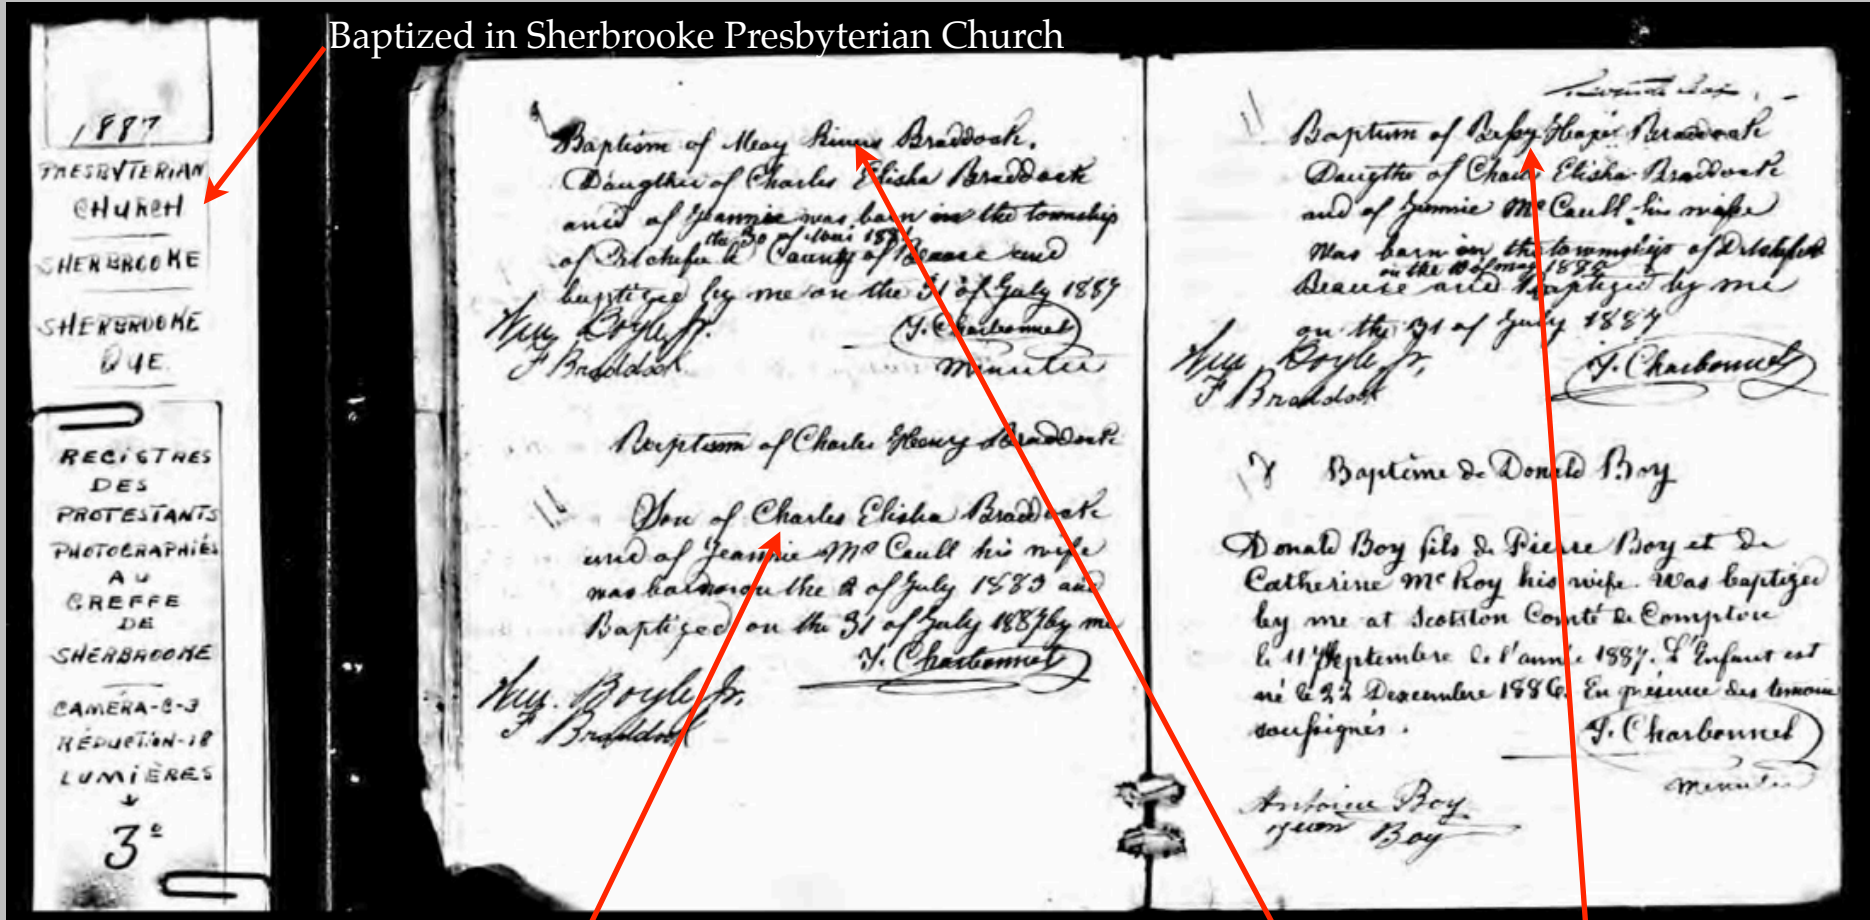 Baptized in Sherbrooke Presbyterian Church
1887
PRESBYTERIAN
CHURCH
SHERBROOKE
SHERBROOKE
QUE.
REGISTRES
DES
PROTESTANTS
PHOTOGRAPHIÉS
AU
GREFFE
DE
SHERBROOKE
CAMÉRA-C-3
RÉDUCTION-18
LUMIÈRES
3º
Baptism of Braddock.
Daugther of Charles Elisha Braddock
and of Jeannie was born in the township
the 30 of
of County of Beauce and
baptized by me on the 31 of July 1887
Wm Boyle Jr. T. Charbonnel
F Braddock
Baptism of Charles Henry Braddock
Son of Charles Elisha Braddock
and of Jeannie Mc Caull his wife
was born on the 2 of July 1883 and
Baptized on the 31 of July 1887 by me
T. Charbonnel
Wm. Boyle Jr.
F Braddock
11
Baptism of Braddock
Daugther of Charles Elisha Braddock
and of Jeannie Mc Caull his wife
Was born in the township of
on the of may
Beauce and Baptized by me
on the 31 of July 1887
Wm Boyle Jr. T. Charbonnel
F Braddock
Baptême de Donald Boy
Donald Boy fils de Pierre Boy et de
Catherine Mc Koy his wife. Was baptized
by me at Scotston Comté de Compton
le 11 Septembre de l'année 1887. L'Enfant est
né le 22 Decembre 1886. En présence des temoins
soussignés.
T. Charbonnel
Antoine Boy
Boy